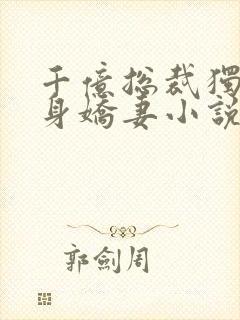 千億總裁獨
身嬌妻小說
郭劍周